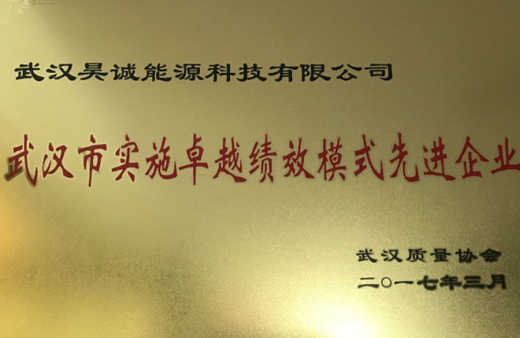 武汉昊诚能源科技有限公司
武汉市实施卓越绩效模式先进企业
武汉质量协会
二〇一七年三月